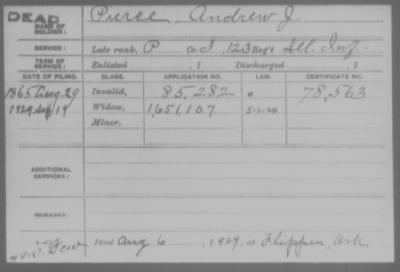 DEAD
NAME OF SOLDIER: Pierce, Andrew J.
SERVICE: Late rank, P Co. I, 123 Reg't Ill. Inf.
TERM OF SERVICE: Enlisted , 1 Discharged , 1
DATE OF FILING. CLASS. APPLICATION NO. LAW. CERTIFICATE NO.
1865 Aug. 29 Invalid, 85,282 78,563
1929 Sep 19 Widow, 1,651,107 5-1-20
Minor,
ADDITIONAL SERVICES:
REMARKS:
Died Aug 6, 1929, at Flippin, Ark.